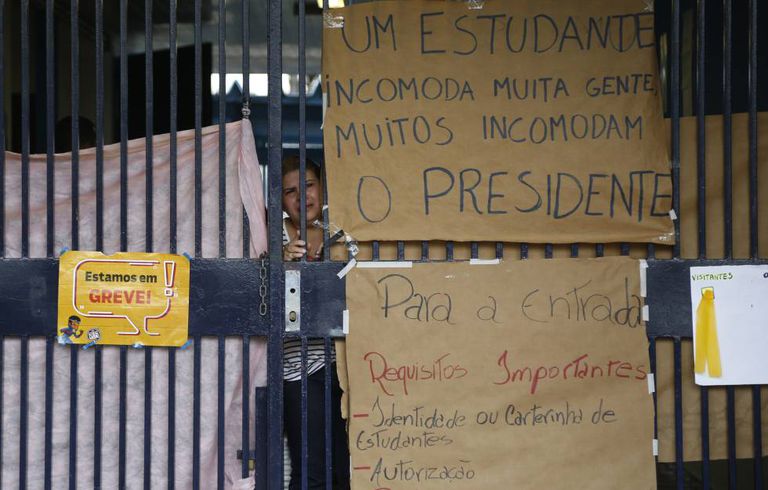 UM ESTUDANTE
INCOMODA MUITA GENTE,
MUITOS INCOMODAM
O PRESIDENTE
Estamos em
GREVE!
VISITANTES
Para a Entrada
Requisitos Importantes
- Identidade ou Carterinha de
Estudantes
- Autorização